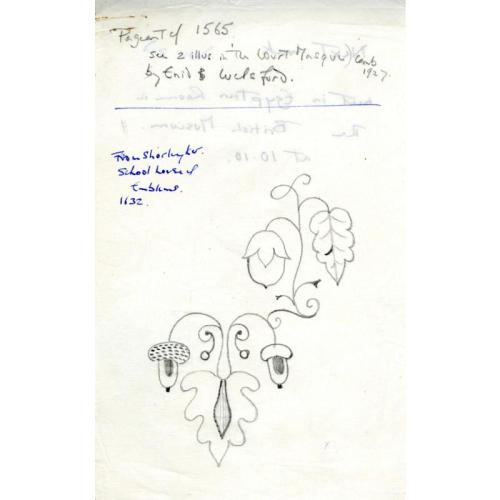 Pageant of 1565.
See 2 illus in The Court Masque, Camb
by Enid Welsford. 1927.
From Shorleyker.
School house of
Emblems.
1632.
meet in Egyptian Room in
the British Museum.
at 10.10.